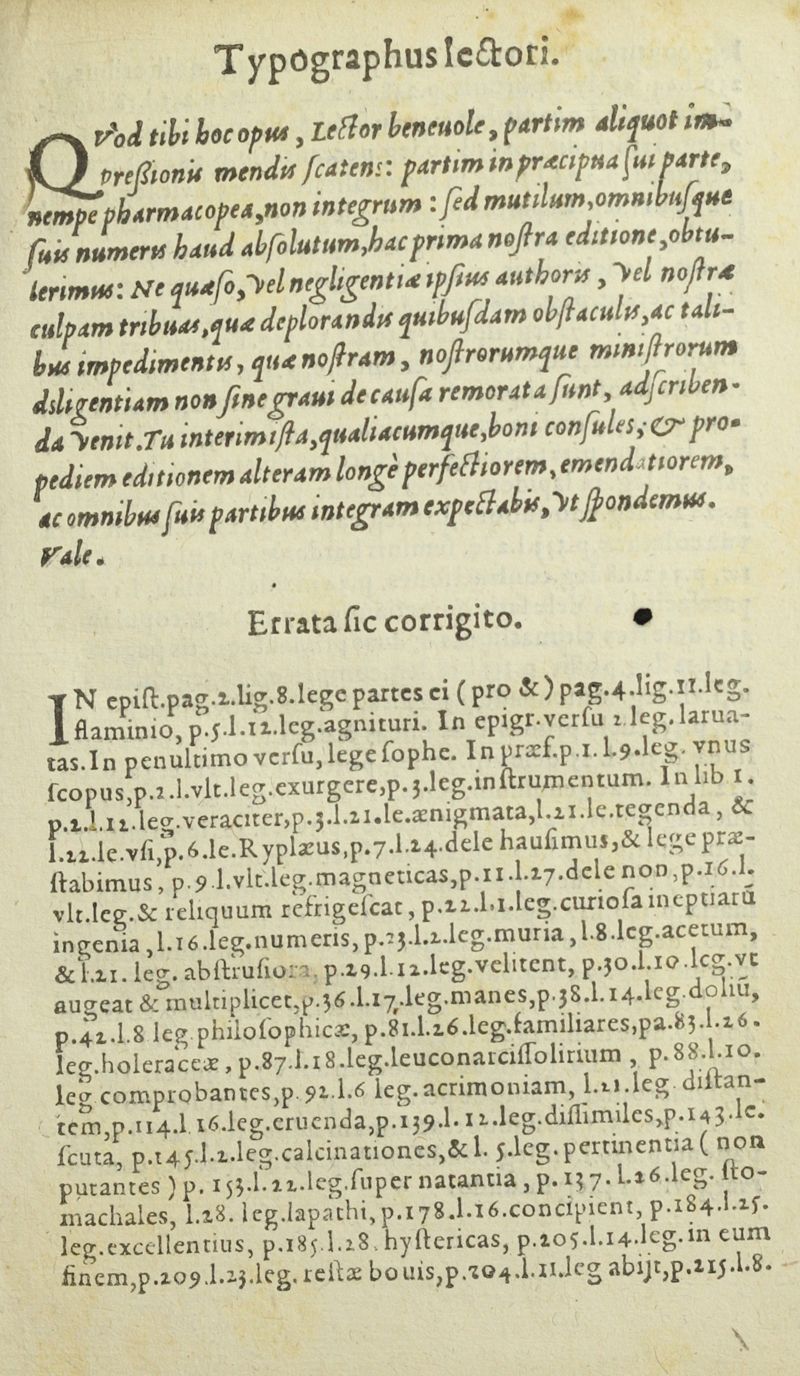 Typographus lectori.
QVod tibi hoc opus, Lector beneuole, partim aliquot im-
preſsionis mendis ſcatens: partim in præcipua ſui parte,
nempe pharmacopea, non integrum: ſed mutilum, omnibuſque
ſuis numeris haud abſolutum, hac prima noſtra editione, obtu-
lerimus: Ne quæſo, vel negligentiæ ipſius authoris, vel noſtræ
culpam tribuas, quæ deplorandis quibuſdam obſtaculis, ac tali-
bus impedimentis, quæ noſtram, noſtrorumque miniſtrorum
dsligentiam non ſine graui de cauſa remorata ſunt, adſcriben-
da venit. Tu interim iſta, qualiacumque, boni conſules, & pro-
pediem editionem alteram longè perfectiorem, emendatiorem,
ac omnibus ſuis partibus integram expectabis, vt ſpondemus.
Vale.
Errata ſic corrigito.
IN epiſt.pag.2.lig.8.lege partes ei (pro &) pag.4.lig.11.leg.
flaminio, p.5.l.12.leg.agnituri. In epigr.verſu 2 leg. larua-
tas. In penultimo verſu, lege ſophe. In præf.p.1.l.9.leg. vnus
ſcopus, p.2.l.vlt.leg.exurgere, p.3.leg.inſtrumentum. In lib 1.
p.2.l.12.leg.veraciter, p.3.l.21.le.ænigmata, l.21.le.tegenda, &
l.22.le.vſi, p.6.le.Ryplæus, p.7.l.24.dele hauſimus, & lege præ-
ſtabimus, p.9.l.vlt.leg.magneticas, p.11.l.27.dele non, p.16.l.
vlt.leg.& reliquum refrigeſcat, p.22.l.1.leg.curioſa ineptiarū
ingenia, l.16.leg.numeris, p.23.l.2.leg.muria, l.8.leg.acetum,
& l.21. leg. abſtruſiora, p.29.l.12.leg.velitent, p.30.l.10.leg.vt
augeat & multiplicet, p.36.l.17.leg.manes, p.38.l.14.leg.doliū,
p.42.l.8 leg.philoſophicæ, p.81.l.26.leg.familiares, pa.83.l.26.
leg.holeraceæ, p.87.l.18.leg.leuconarciſſolirium, p.88.l.10.
leg comprobantes, p.92.l.6 leg. acrimoniam, l.21.leg. diſtan-
tem, p.114.l 16.leg.eruenda, p.139.l.12.leg.diſſimiles, p.143.le.
ſcuta, p.145.l.2.leg.calcinationes, & l. 5.leg. pertinentia (non
putantes) p. 153.l.22.leg.ſuper natantia, p.137.l.26.leg. ſto-
machales, l.28. leg.lapathi, p.178.l.16.concipient, p.184.l.25.
leg.excellentius, p.185.l.28. hyſtericas, p.205.l.14.leg.in eum
finem, p.209.l.23.leg. reſtæ bouis, p.204.l.11.leg abijt, p.215.l.8.